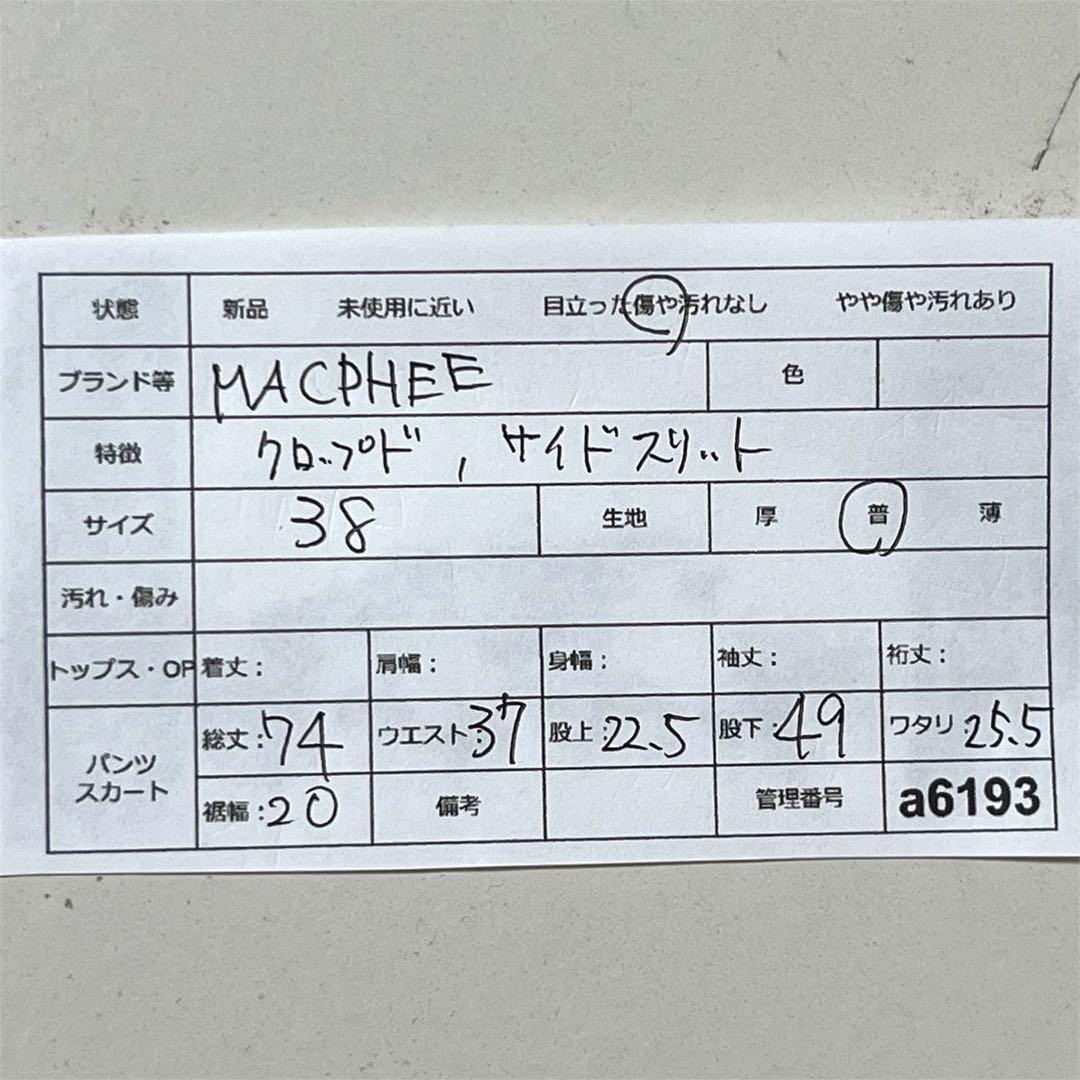 状態 新品 未使用に近い 目立った傷や汚れなし やや傷や汚れあり
ブランド等 MACPHEE 色
特徴 クロップド, サイドスリット
サイズ 38 生地 厚 普 薄
汚れ・傷み
トップス・OP 着丈: 肩幅: 身幅: 袖丈: 裄丈:
パンツ スカート 総丈:74 ウエスト:37 股上:22.5 股下:49 ワタリ:25.5
裾幅:20 備考 管理番号 a6193